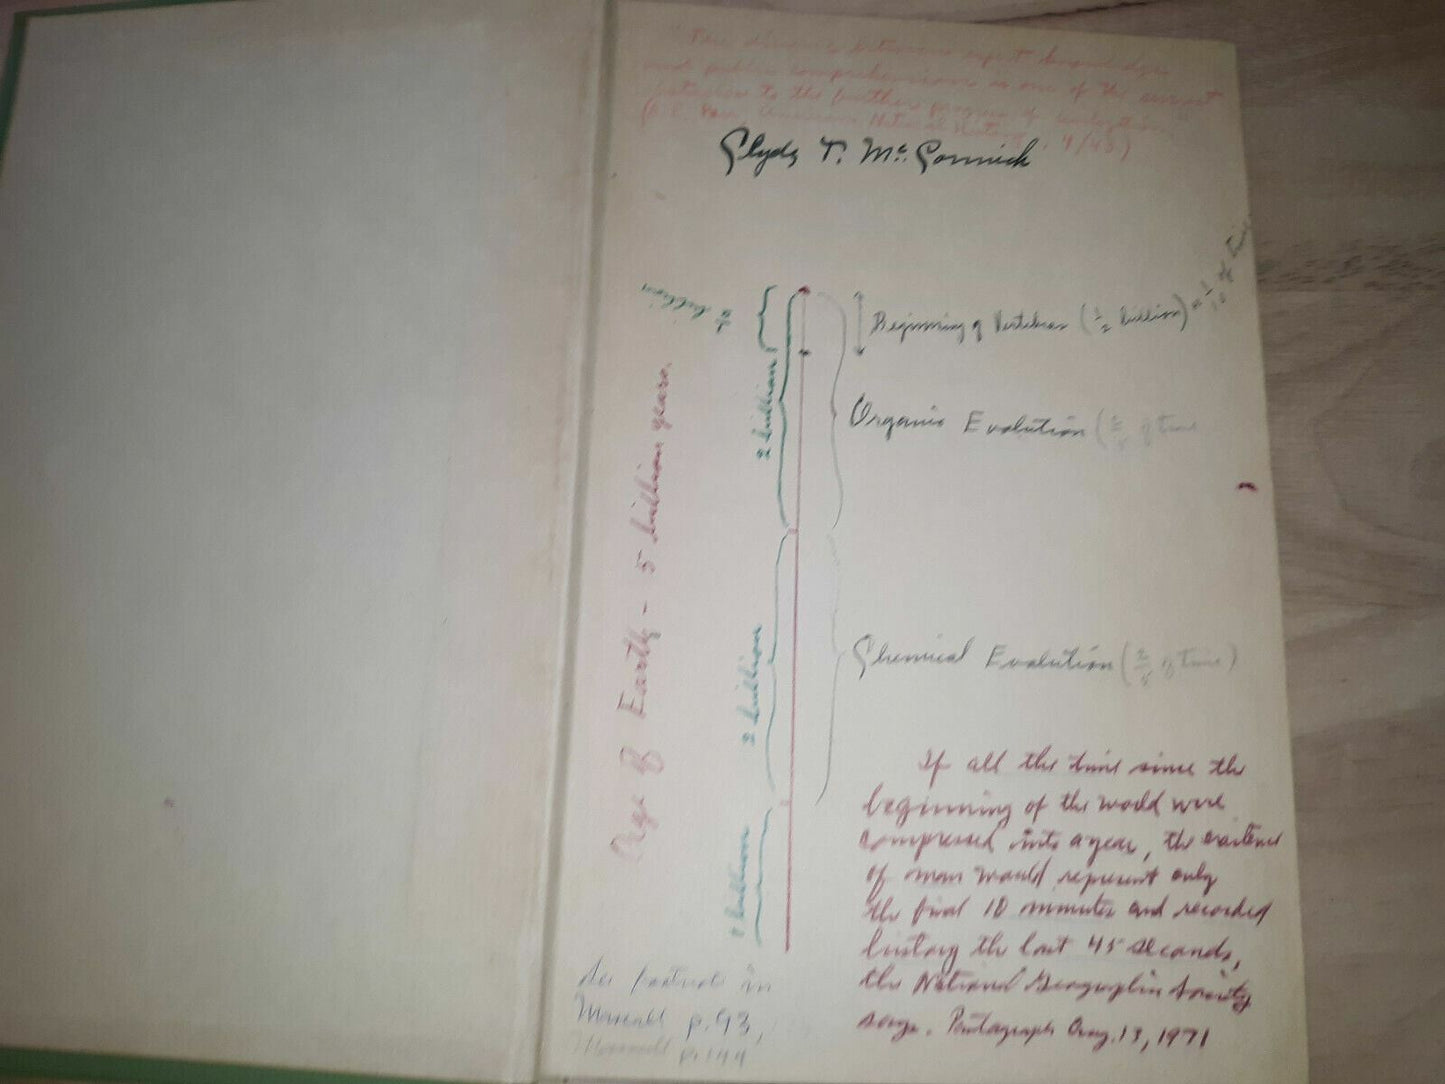 "The distance between expert knowledge
and public comprehension is one of the
to the further progress of
American Natural History, 4/48)
Clyde T. McCormick
½ billion
Beginning of Vertebras (½ billion) = 1/10 of time
2 billion
Organic Evolution (2/5 of time
Age of Earth - 5 billion years.
2 billion
Chemical Evolution (2/5 of time)
1 billion
If all the time since the
beginning of the world were
compressed into a year, the existence
of man would represent only
the final 10 minutes and recorded
history the last 45 seconds,
the National Geographic Society
says. Pantagraph Aug. 13, 1971
See footnote in
Mascall p. 93,
Mascall p. 144